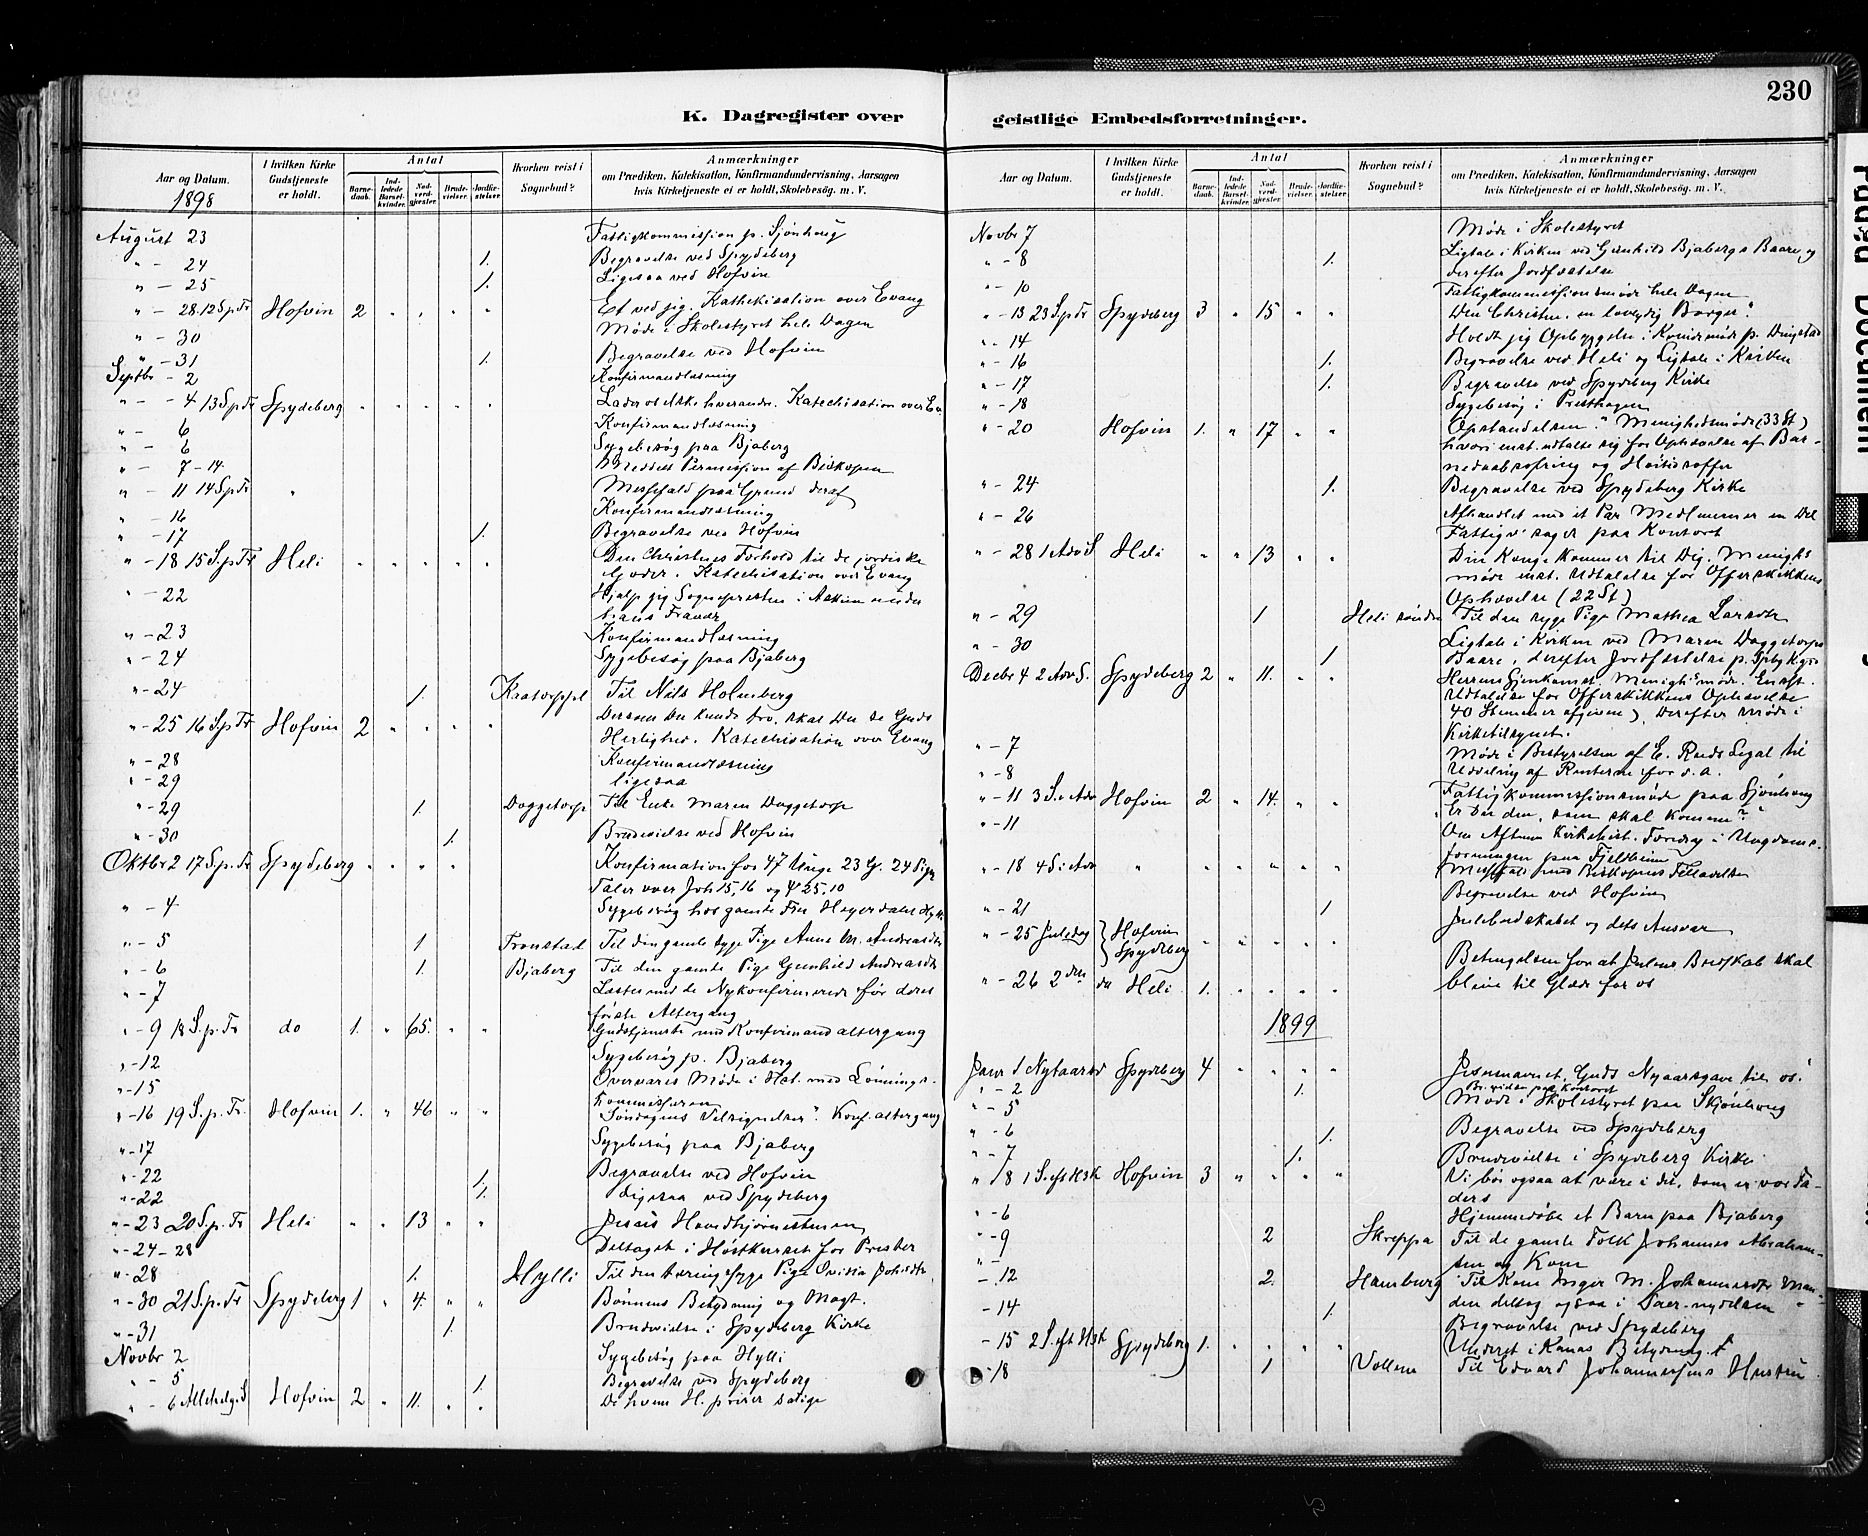 230
K. Dagregister over
geistlige Embedsforretninger.
Aar og Datum.
I hvilken Kirke Gudstjeneste er holdt.
Antal
Barnedaab.
Indledede Barselkvinder.
Nadverdgjester.
Brudevielser.
Jordfæstelser.
Hvorhen reist i Sognebud?
Anmærkninger
om Prædiken, Katekisation, Konfirmandundervisning, Aarsagen
hvis Kirketjeneste ei er holdt, Skolebesög. m. V.
1898
August 23 Fattigkommission p. Sjønhaug
" - 24 1. Begravelse ved Spydeberg
" - 25 1. Ligesaa ved Hofvin
" - 28. 12 S p Tr Hofvin 2 " " " " Et ved jeg. Kathekisation over Evang
" - 30 Møde i Skolestyret hele Dagen
" - 31 1. Begravelse ved Hofvin
Septbr - 2 Konfirmandlæsning
" - 4 13 S p Tr Spydeberg " " " " " Lader os elske hverandre. Katechisation over Ev
" - 6 Konfirmandlæsning
" - 6 Sygebesøg paa Bjaberg
" - 7-14. Meddelt Permission af Biskopen
" - 11 14 S p Tr " Messefald paa Grund deraf
" - 16 Konfirmandlæsning
" - 17 1. Begravelse ved Hofvin
" - 18 15 S. p. Tr Heli " " " " " Den Christnes Forhold til de jordiske
Goder. Katechisation over Evang
" - 22 Hjalp jeg Sognepresten i Askim under
hans Fravær
" - 23 Konfirmandlæsning
" - 24 Sygebesøg paa Bjaberg
" - 24 1. Til Nils Holmberg
" - 25 16 S. p. Tr Hofvin 2 " " " " Dersom Du kunde tro, skal Du se Guds
Herlighed. Katechisation over Evang
" - 28 Konfirmandlæsning
" - 29 ligesaa
" - 29 1. Daggetorp Til Enke Maren Daggetorp
" - 30 1. Brudevielse ved Hofvin
Oktbr 2 17 S. p. Tr Spydeberg " " " " Konfirmation for 47 Unge 23 G. 24 Piger
Taler over Joh 15,16 og 4 25.10
" - 4 Sygebesøg hos gamle Fru Heyerdahl
" - 5 1 Fronstad Til den gamle syge Pige Anne M. Andreasdtr
" - 6 1. Bjaberg Til den gamle Pige Gunhild Andreasdtr
" - 7 Læste med de Nykonfirmerede før deres
første Altergang
" - 9 18 S. p. Tr do 1. " 65. " " Gudstjeneste med Konfirmandaltergang
" - 12 Sygebesøg p. Bjaberg
" - 15 Overvares Møde i med Lønnings-
kommissæren
" - 16 19 S. p. Tr. Hofvin 1. " 46 " " "Søndagens Velsignelser". Konf. altergang
" - 17 Sygebesøg paa Bjaberg
" - 22 1. Begravelse ved Hofvin
" - 22 1. Ligesaa ved Spydeberg
" - 23 20 S. p. Tr Heli " " 13 " " Jesus Hovedhjørnestenen
" - 24-28 Deltaget i Høstkurset for Prester
" - 28 1. Hylli Til den tæringssyge Pige Ovidia Johsdtr
" - 30 21 S. p. Tr Spydeberg 1 " 4. " " Bønnens Betydning og Magt.
" - 31 1. Brudevielse i Spydeberg Kirke
Novbr 2 Sygebesøg paa Hylli
" - 5 1. Begravelse ved Spydeberg
" - 6 Allehelgs Hofvin 2 " 11. " " De hvem H. priser salige
Aar og Datum.
I hvilken Kirke Gudstjeneste er holdt.
Antal
Barnedaab.
Indledede Barselkvinder.
Nadverdgjester.
Brudevielser.
Jordfæstelser.
Hvorhen reist i Sognebud?
Anmærkninger
om Prædiken, Katekisation, Konfirmandundervisning, Aarsagen
hvis Kirketjeneste ei er holdt, Skolebesög. m. V.
Novbr 7 Møde i Skolestyret
" - 8 1. Ligtale i Kirken ved Gunhild Bjabergs Baare, og
derefter Jordfæstelse
" - 10 Fattigkommissionsmøde hele Dagen
" - 13 23 S p Tr Spydeberg 3 " 15 " " Den Christne, en lovlydig Borger."
" - 14 Holdt jeg Opbyggelse i Kvindemøde p.
" - 16 1. Begravelse ved Heli og Ligtale i Kirken
" - 17 1. Begravelse ved Spydeberg Kirke
" - 18 Sygebesøg i Presthagen
" - 20 Hofvin 1. " 17 " " Opstandelsen." Menighedsmøde (33 St)
hvori enst. udtalte sig for Ophævelse af Bar-
nedaabsofring og Høitidsoffer
" - 24 1. Begravelse ved Spydeberg Kirke
" - 26 Afhandlet med et Par Medlemmer en Del
Fattigsager paa Kontoret
" - 28 1 Adv S Heli " " 13 " " Din Konge kommer til Dig. Menigh.
møde enst. Udtalelse for Offerskikkens
Ophævelse (22 St)
" - 29 1 Heli søndre Til den syge Pige Mathea Larsdtr
" - 30 1 Ligtale i Kirken ved Maren Daggetorps
Baare, derefter Jordfæstelse p. Spbg Kgd
Decbr 4 2 Adv S. Spydeberg 2 " 11. " " Herrens Gjenkomst. Menigh. møde. Enst.
Udtalelse for Offerskikkens Ophævelse
40 Stemmer afgivne). Derefter Møde i
Kirketilsynet.
" - 7 Møde i Bestyrelsen af E. Ruds Legat til
Uddeling af Renterne for d. A.
" - 8 Fattigkommissionsmøde paa Sjønhaug
" - 11 3 S. i Adv Hofvin 2 " 14. " " "Er Du den, som skal komme"?
" - 11 Om Aftenen Kirkehist. Foredrag i Ungdoms-
foreningen paa Fjeldheim
" - 18 4 S. i Adv " " " " " Messefald med Biskopens Tilladelse
" - 21 1 Begravelse ved Hofvin
" - 25 Juledag Hofvin
Spydeberg " " " " Julebudskabet og dets Ansvar
" - 26 2den do Heli 1. " " " " Betingelsen for at Julens Budskab skal
blive til Glæde for os
1899
Janr 1 Nytaarsd Spydeberg 4 " " " " Jesunavnet, Guds Nyaarsgave til os!
" - 2 1. Br. vielse paa Kontoret
" - 5 Møde i Skolestyret paa Skjønhaug
" - 6 1. Begravelse ved Spydeberg
" - 7 1. Brudevielse i Spydeberg Kirke
" - 8 1 S. eft H3K Hofvin 3 " " " " Vi bør ogsaa at være i det, som er vor Fa-
ders
" - 6 Hjemmedøbt et Barn paa Bjaberg
" - 9 2 Skreppa Til de gamle Folk Johannes Abraham-
sen og Kone
" - 12 2. Hamburg Til Kone Inger M. Johannesdtr Man-
den deltog ogsaa i Sacr. nydelsen
- 14 1 Begravelse ved Spydeberg
- 15 2 S. eft H3K Spydeberg 1. " " " " Underet i Kanas Betydning.
- 18 1 Vollene Til Edvard Johannessens Hustru